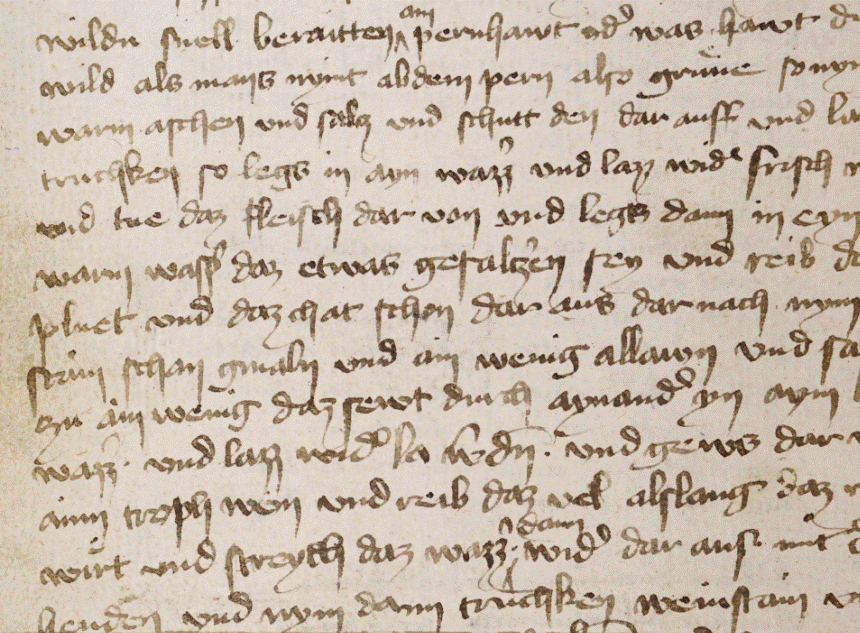 wildu snell beraitten ain pernhawt od' was hawt du
wild als mans nymt ab dem pern also grüne so nym
warm aschen vnd salcz vnd schutt den dar auff vnd la
truchken so legs in ayn wazz' vnd lazz wid' frisch
vnd tue daz fleisch dar von vnd legs dann in eyn
warm wass' daz etwas gesalczen sey vnd reib da
pluet vnd daz chat schon dar aus dar nach nym
schon gmaln vnd ain wenig allawn vnd sa
czu ain wenig daz sewt durch aynand' yn aym
wazz' vnd lazz wid' la w'dn. vnd gews dar
ainn troph wein vnd reib daz vel alslang daz
wirt vnd streych daz wazz' dann wid' dar aus mit
henden vnd nym dann truchken weinstain